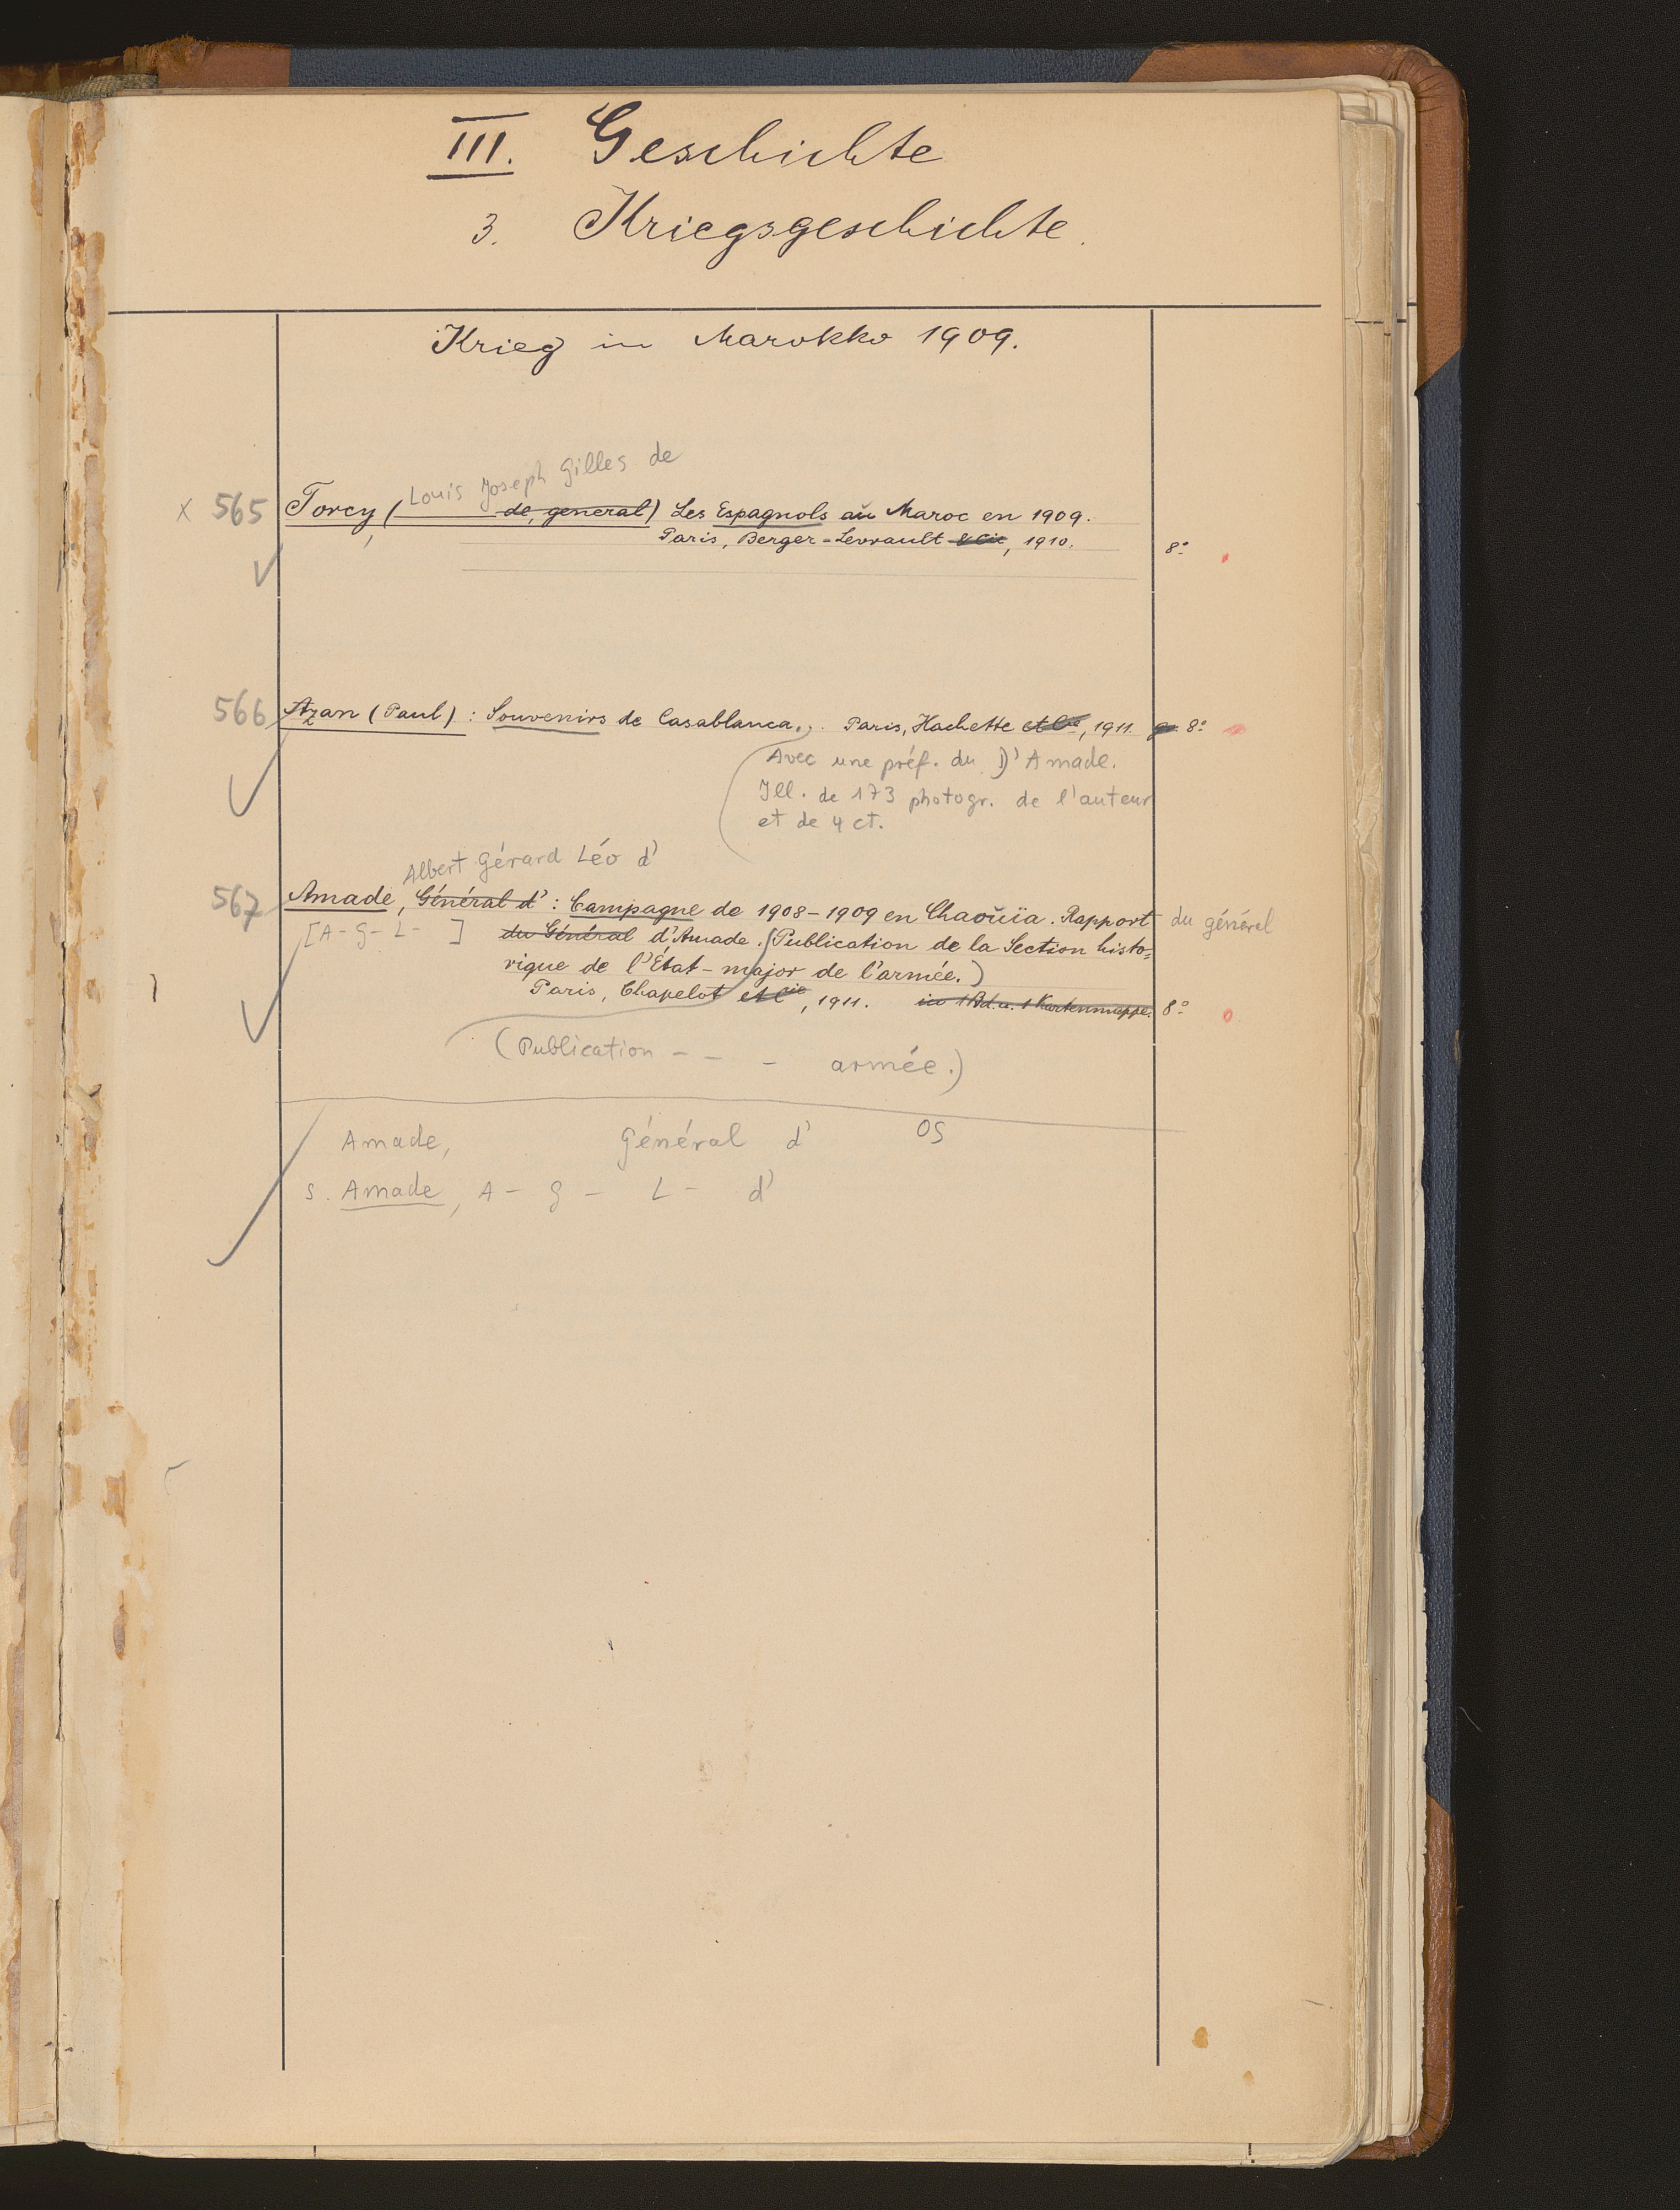 III. Geschichte
3. Kriegsgeschichte.
Krieg in Marokko 1909.
Louis Joseph Gilles de
x 565 Torcy, (de, general) Les Espagnols aŭ Maroc en 1909.
Paris, Berger-Levrault & Cie, 1910. 8°
566 Azan (Paul): Souvenirs de Casablanca. Paris, Hachette et Cie, 1911. 8°
Avec une préf. du D'Amade.
Ill. de 173 photogr. de l'auteur
et de 4 ct.
Albert Gérard Léo d'
567 Amade, Général d': Campagne de 1908-1909 en Chaoŭïa. Rapport du général
[A- G- L- ] du Général d'Amade. (Publication de la Section histo=
rique de l'État-major de l'armée.)
Paris, Chapelot et Cie, 1911. in 1 Bd. u. 1 Kartenmappe. 8°
(Publication - - - armée.)
Amade, Général d' OS
s. Amade, A- G- L- d'